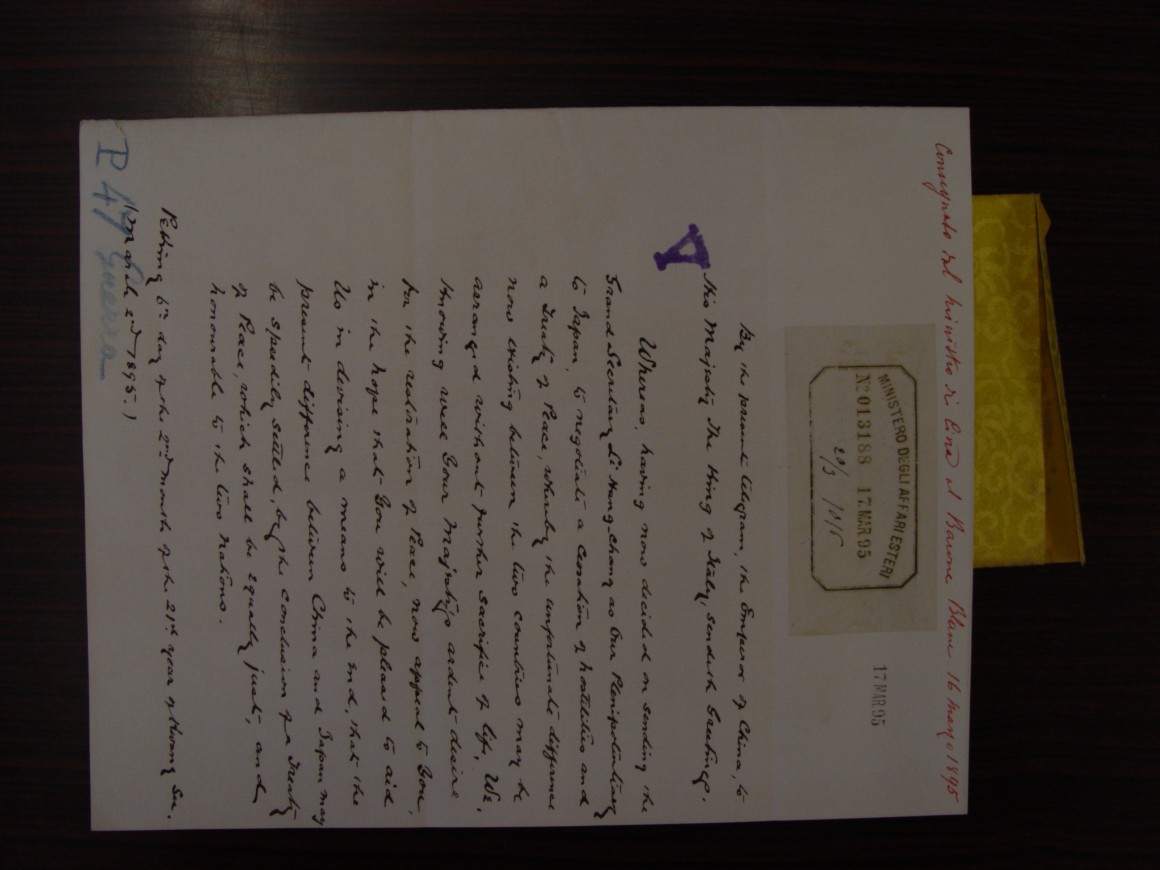 Consegnato dal ministro di Cina al Barone Blanc 16 marzo 1895
17 MAR 95
MINISTERO DEGLI AFFARI ESTERI
No 013188 17.MAR 95
20/3
By the present telegram, the Emperor of China, to
His Majesty The King of Italy, sendeth Greetings.
Whereas, having now decided on sending the
Grand Secretary Li Hung Chang as Our Plenipotentiary
to Japan, to negotiate a cessation of hostilities and
a Treaty of Peace, whereby the unfortunate difference
now existing between the two countries may be
arranged without further sacrifice of life, We,
knowing well Your Majesty's ardent desire
for the restoration of Peace, now appeal to You,
in the hope that You will be pleased to aid
Us in devising a means to the end, that the
present difference between China and Japan may
be speedily settled, by the conclusion of a Treaty
of Peace, which shall be equally just, and
honourable to the two nations.
Peking 6th day of the 2nd month of the 21st year of Kwang Su.
(March 2nd 1895.)
P 47 Guerra